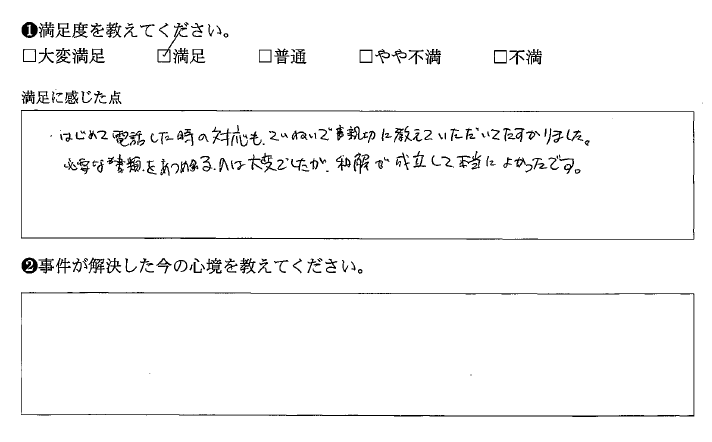 ❶満足度を教えてください。
□大変満足 ☑満足 □普通 □やや不満 □不満
満足に感じた点
・はじめて電話した時の対応も、ていねいで親切に教えていただいてたすかりました。
必要な書類をあつめるのは大変でしたが、和解が成立して本当によかったです。
❷事件が解決した今の心境を教えてください。